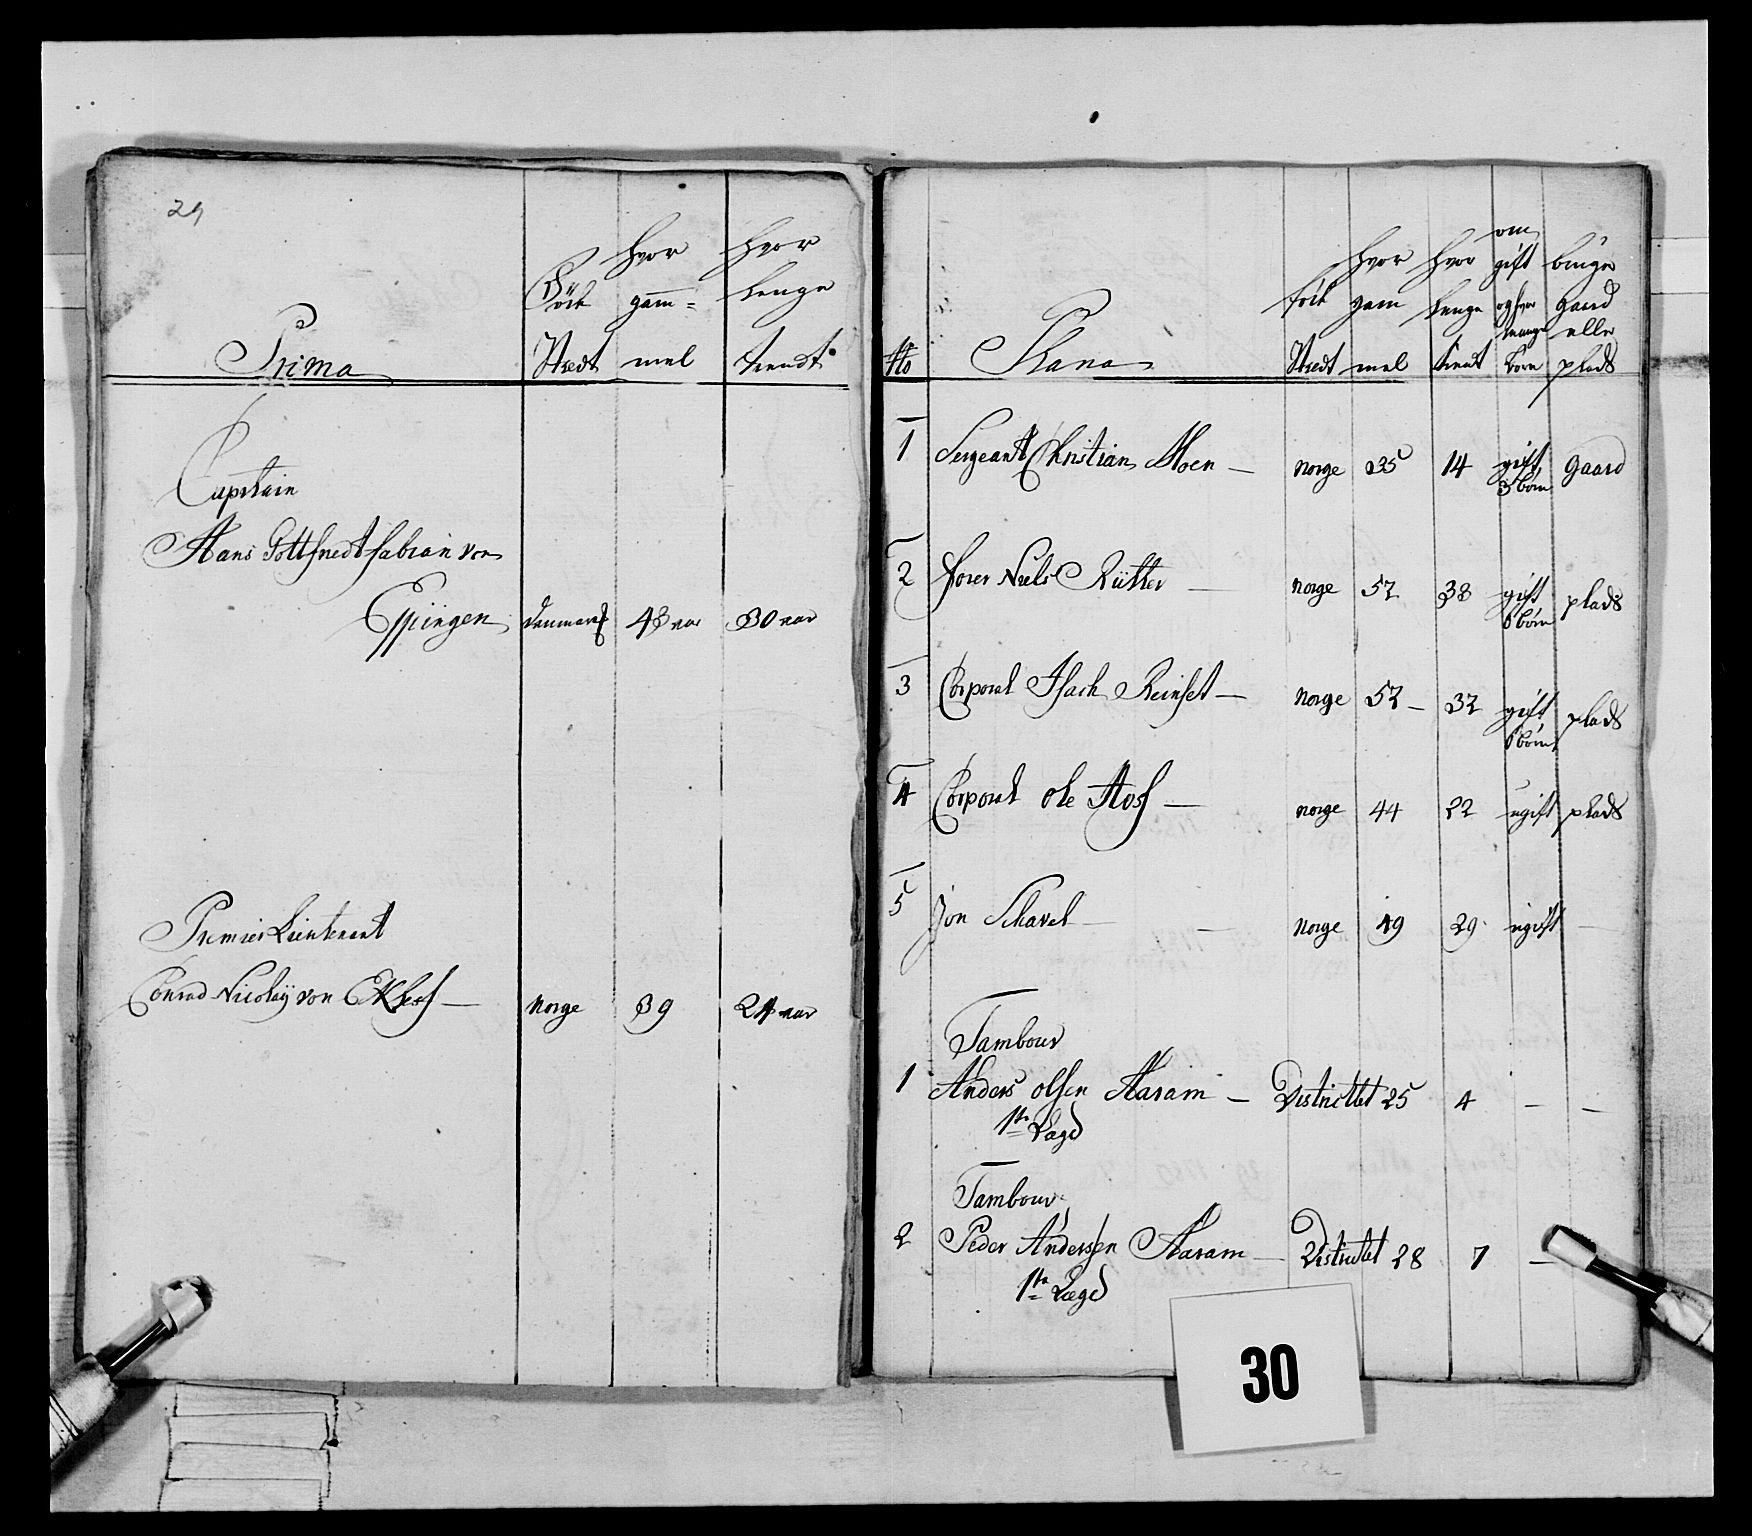 29
Prima
Föde Stedt
hvor gam= mel
hvor lenge tiendt
Captain
Hans Gottfriedt fabian von
Eppingen danmark 48 aar 30 aar
Premier Lieutenant
Conrad Nicolaÿ von Ekleff — Norge 39 24 aar
No
Plana
föde Stedt
hvor gam mel
hvor lenge tient
om gift og hvor mange born
büger gaard eller plads
1 Sergeant Christian Moen — Norge 35 14 gift gaard
3 börn
2 forer Niels Rütter — Norge 57 38 gift plads
6 börn
3 Corporal Isach Reinset — Norge 52 — 32 gift plads
6 börn
4 Corporal ole Aos — Norge 44 22 ugift plads
5 Jon Schavel — — Norge 49 29 ugift —
Tambour
1 Anders olsen Aaram — Districtet 25 4 — —
1te Lægd
Tambour
2 Peder Andersen Aaram — Districtet 28 7 —
1te Lægd
30